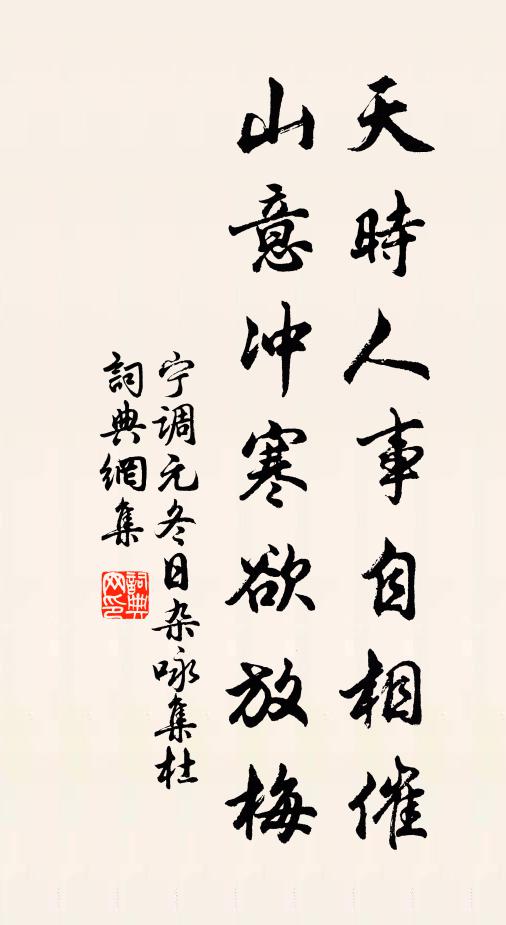 天時人事自相催
山意冲寒欲放梅
宁调元冬日杂咏集杜
詞典網集
詞典网印